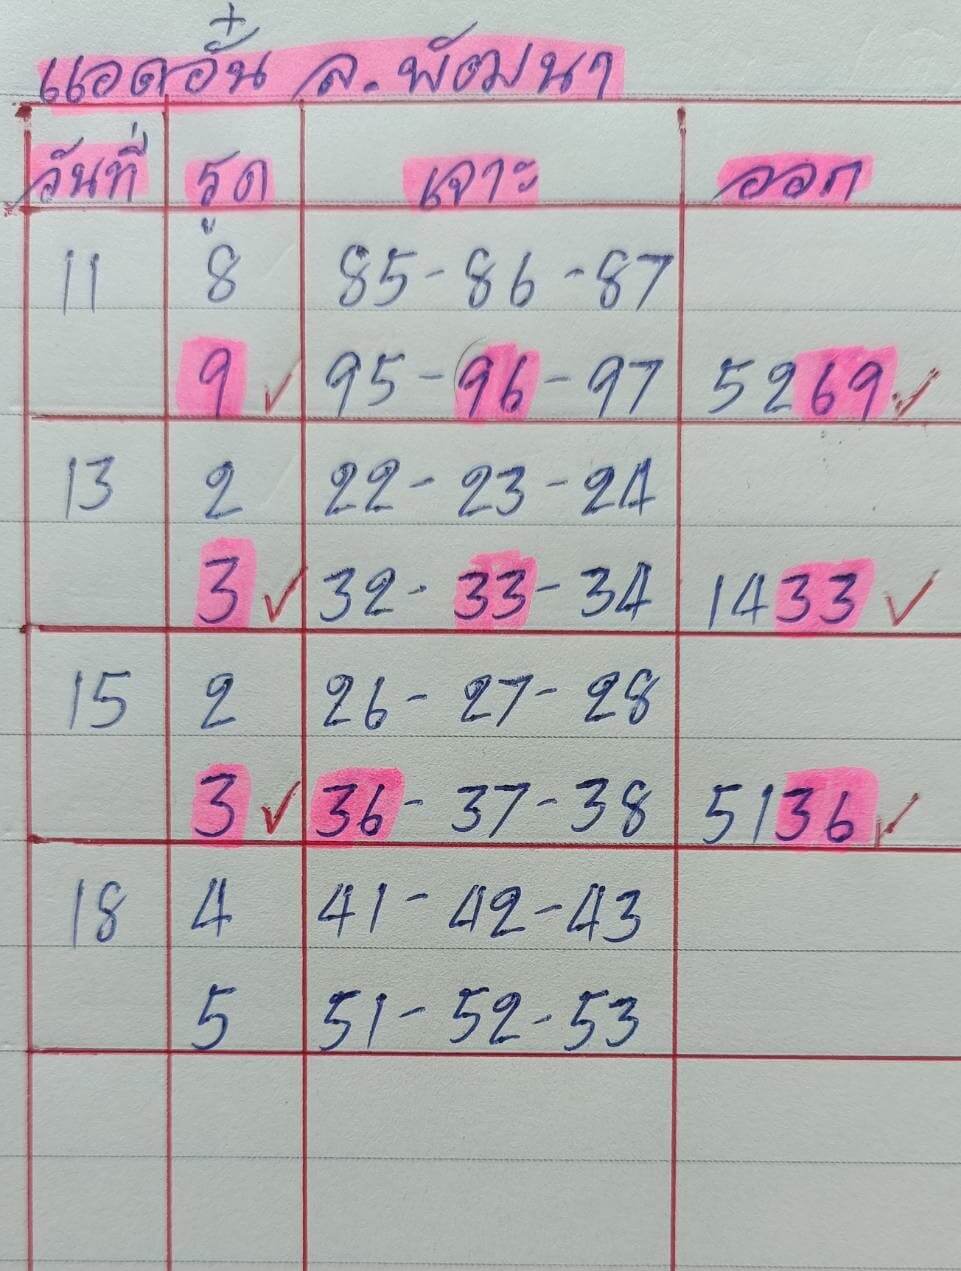 แอดอั๋น ล.พัฒนา
วันที่ รูด เจาะ ออก
11 8 85-86-87
9 ✓ 95-(96-97 5269 ✓
13 2 22-23-24
3 ✓ 32-33-34 1433 ✓
15 2 26-27-28
3 ✓ 36-37-38 5136 ✓
18 4 41-42-43
5 51-52-53